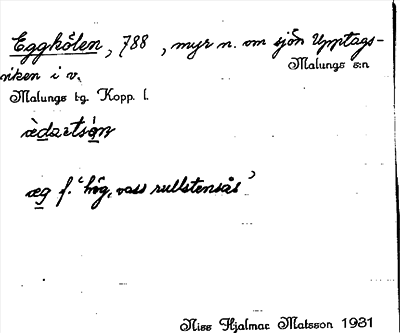 Eggkölen, 788, myr n. om sjön Upptags-
viken i v. Malungs s:n
Malungs tg. Kopp. l.
æg f. 'hög, vass rullstensås'
Niss Hjalmar Matsson 1931